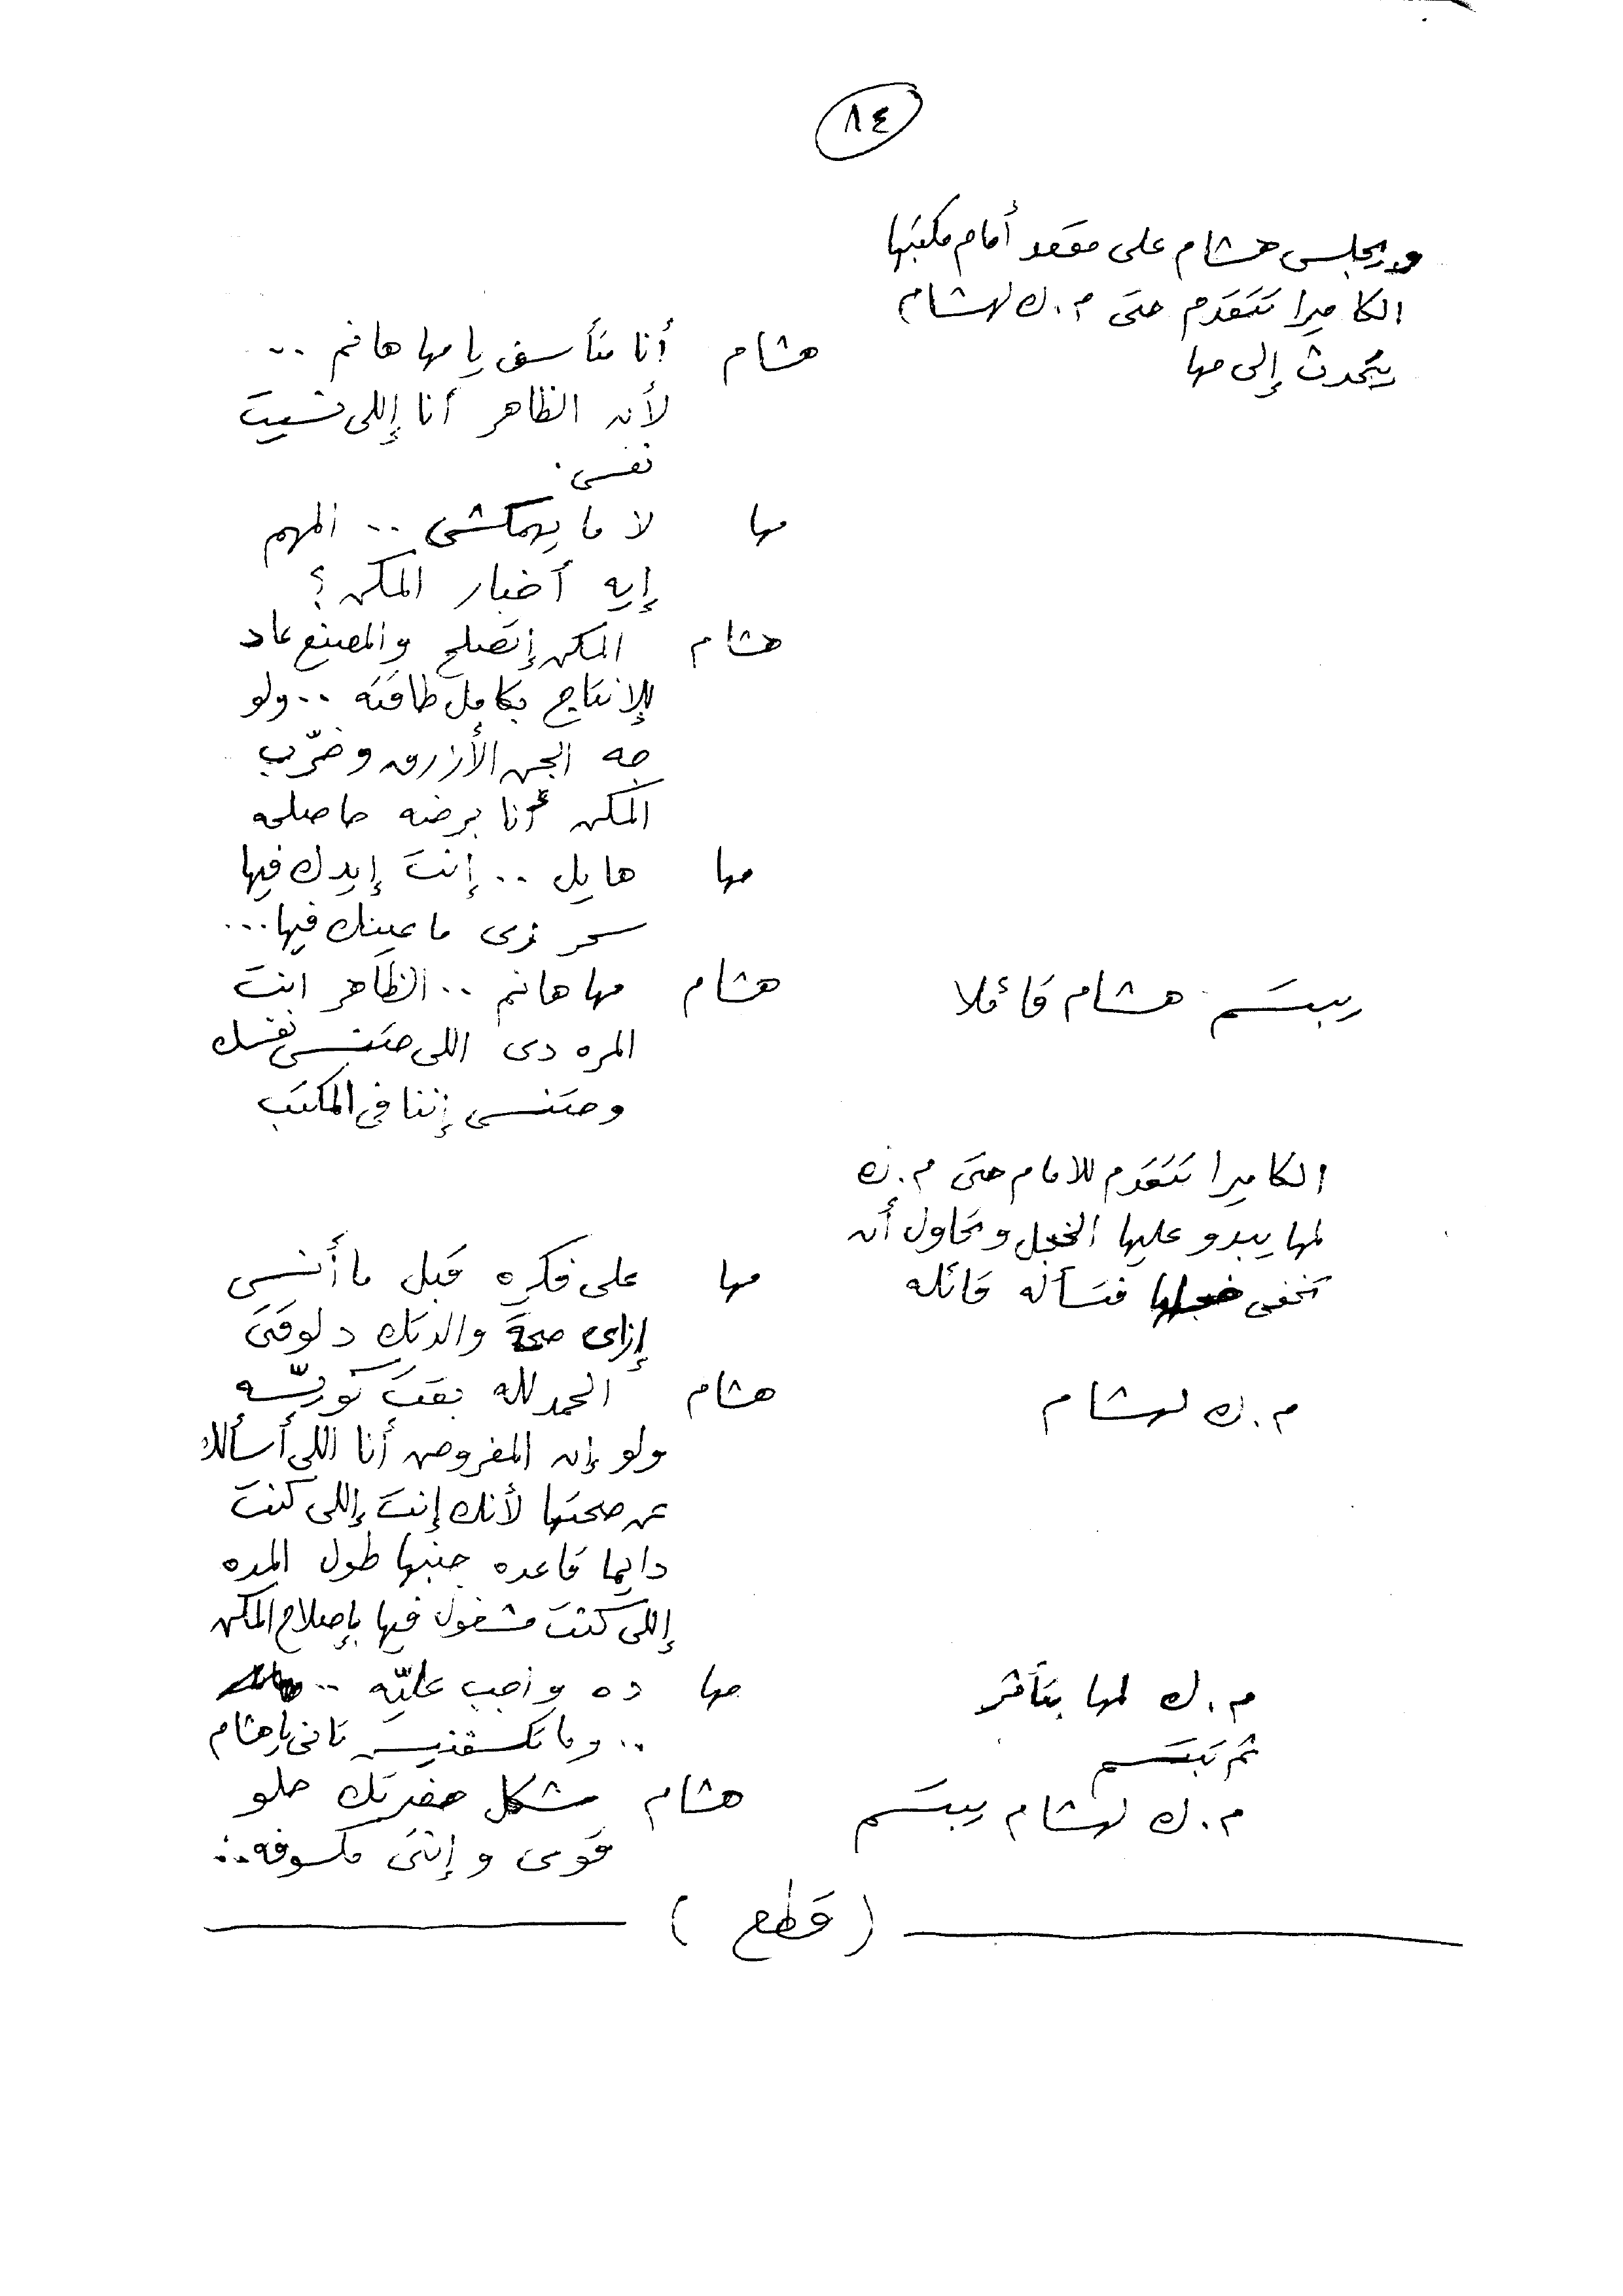 ٨٤
ويجلس هشام على مقعد أمام مكتبها
الكاميرا تتقدم حتى م.ك لهشام
يتحدث إلى مها
هشام أنا متأسف يا مها هانم ..
لأن الظاهر أنا إللى نسيت
نفسى .
مها لا ما يهمكش .. المهم
إيه أخبار المكن ؟
هشام المكن إتصلح والمصنع عاد
للإنتاج بكامل طاقته .. ولو
جه الجن الأزرق وخرّب
المكن أنا برضه حاصلحه
مها هايل .. إنت إيدك فيها
سحر زى ما عينك فيها ...
يبتسم هشام قائلا
هشام مها هانم .. الظاهر انت
المره دى اللى حتنسى نفسك
وحتنسى إننا فى المكتب
الكاميرا تتقدم للامام حتى م.ك
لمها يبدو عليها الخجل وتحاول أن
تخفى خجلها فتسأله قائله
مها على فكره قبل ما أنسى
إزاى صحة والدتك دلوقتى
م.ك لهشام
هشام الحمد لله بقت كويّسه
ولو إن المفروض أنا اللى أسألك
عن صحتها لأنك إنت إللى كنت
دايما قاعده جنبها طول المده
إللى كنت مشغول فيها بإصلاح المكن
م.ك لمها بتأثر
مها ده واجب عليّه ..
ثم تبتسم
.. وما تكسفنيش تانى يا هشام
م.ك لهشام يبتسم
هشام شكل حضرتك حلو
قوى وإنتى مكسوفه ..
( قطع )